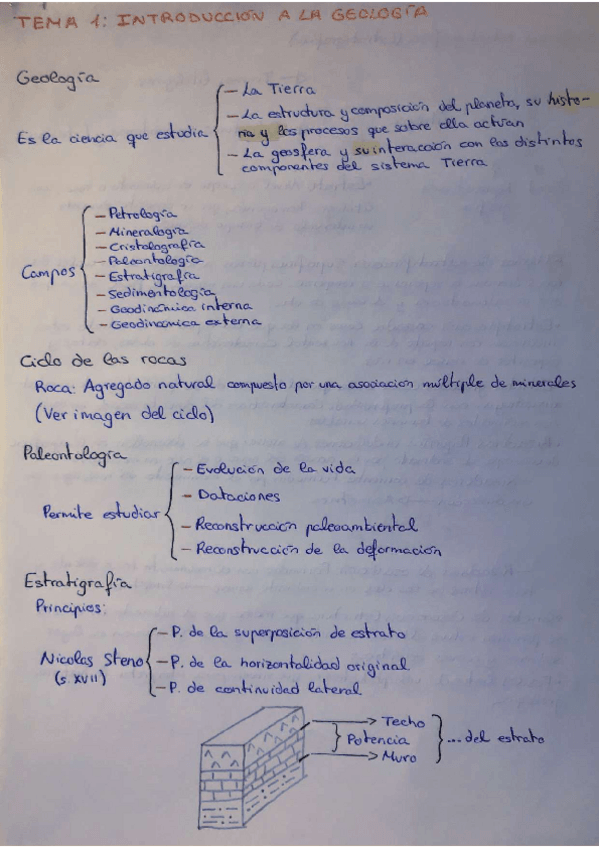 TEMA 1: INTRODUCCIÓN A LA GEOLOGÍA
Geología
Es la ciencia que estudia
- La Tierra
- La estructura y composición del planeta, su histo-
ria y los procesos que sobre ella actúan
- La geosfera y su interacción con los distintos
componentes del sistema Tierra
Campos
- Petrología
- Mineralogía
- Cristalografía
- Paleontología
- Estratigrafía
- Sedimentología
- Geodinámica interna
- Geodinámica externa
Ciclo de las rocas
Roca: Agregado natural compuesto por una asociación múltiple de minerales
(Ver imagen del ciclo)
Paleontología
Permite estudiar
- Evolución de la vida
- Dataciones
- Reconstrucción paleoambiental
- Reconstrucción de la deformación
Estratigrafía
Principios:
Nicolas Steno
(s. XVII)
- P. de la superposición de estrato
- P. de la horizontalidad original
- P. de continuidad lateral
Techo
Potencia
Muro
... del estrato